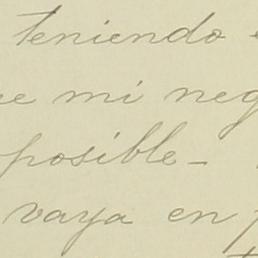 teniendo
mi neg
posible_
vaya en